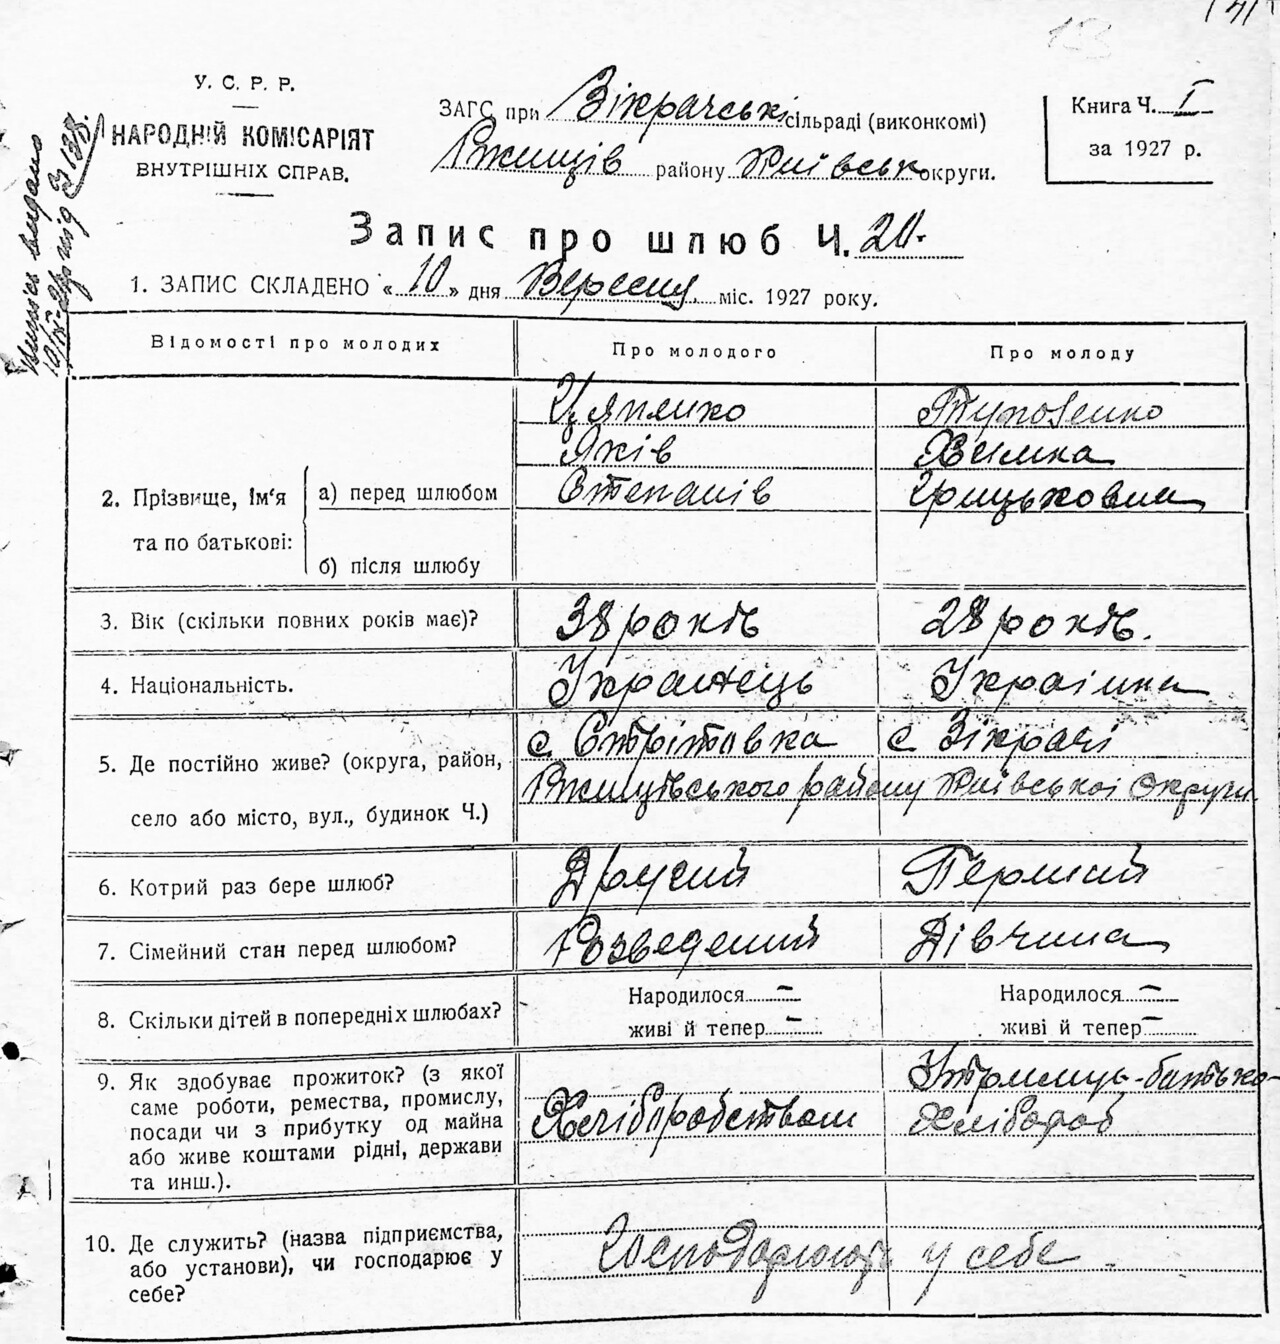 153
У. С. Р. Р.
НАРОДНІЙ КОМІСАРІЯТ
ВНУТРІШНІХ СПРАВ.
ЗАГС при Зікрачські сільраді (виконкомі)
Ржищів району Київськ округи.
Книга Ч. I
за 1927 р.
Запис про шлюб Ч. 20.
1. ЗАПИС СКЛАДЕНО « 10 » дня Вересня міс. 1927 року.
Відомості про молодих Про молодого Про молоду
2. Прізвище, ім'я та по батькові:
а) перед шлюбом
б) після шлюбу
Цяпляко
Яків Химка
Степанів Грицьковна
3. Вік (скільки повних років має)? 38 років 28 років.
4. Національність. Українець Українка
5. Де постійно живе? (округа, район, с. Стрітовка с Зікрачі
село або місто, вул., будинок Ч.) Ржищівського району Київської Округи.
6. Котрий раз бере шлюб? Другий Перший
7. Сімейний стан перед шлюбом? Розведений Дівчина
8. Скільки дітей в попередніх шлюбах? Народилося – Народилося –
живі й тепер – живі й тепер –
9. Як здобуває прожиток? (з якої
саме роботи, ремества, промислу,
посади чи з прибутку од майна
або живе коштами рідні, держави
та инш.).
Хліборобством
Утримець-батько-
Хлібороб
10. Де служить? (назва підприємства,
або установи), чи господарює у
себе?
Господарюють у себе